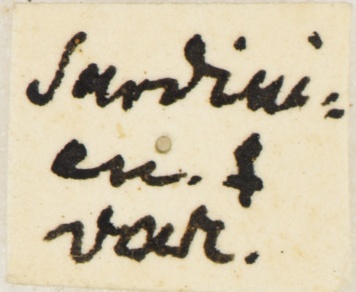 Sardini-
en. f
var.